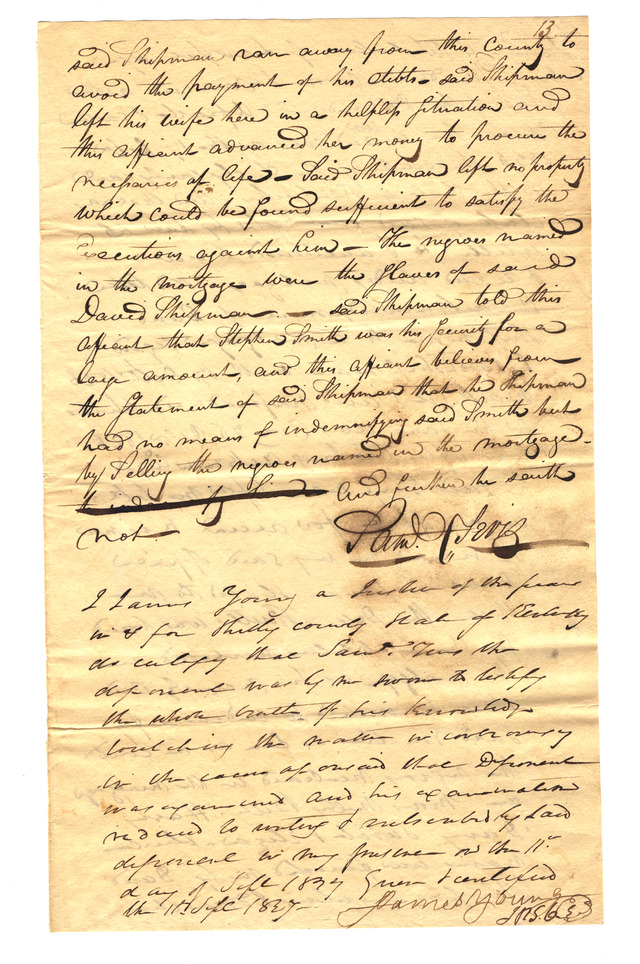 13
said Shipman ran away from this county to
avoid the payment of his debts - said Shipman
left his wife here in a helpless situation and
this affiant advanced her money to procure the
necessaries of life - Said Shipman left no property
which could be found sufficient to satisfy the
Executions against him - The negroes named
in the mortgage were the slaves of said
David Shipman - said Shipman told this
affiant that Stephen Smith was his security for a
large amount, and this affiant believes from
the statement of said Shipman that he Shipman
had no means of indemnifying said Smith but
by selling the negroes named in the mortgage -
and further he saith
not -
Saml.
I James Young a Justice of the peace
in & for Shelby county State of Kentucky
do certify that Saml. the
deponent was by me sworn to testify
the whole truth of his knowledge
touching the matter in controversy
in the cause aforesaid that deponent
was examined and his examination
reduced to writing & subscribed by said
deponent in my presence on the 11th
day of Sept 1837 Given & certified
the 11th Sept 1837 -
James Young